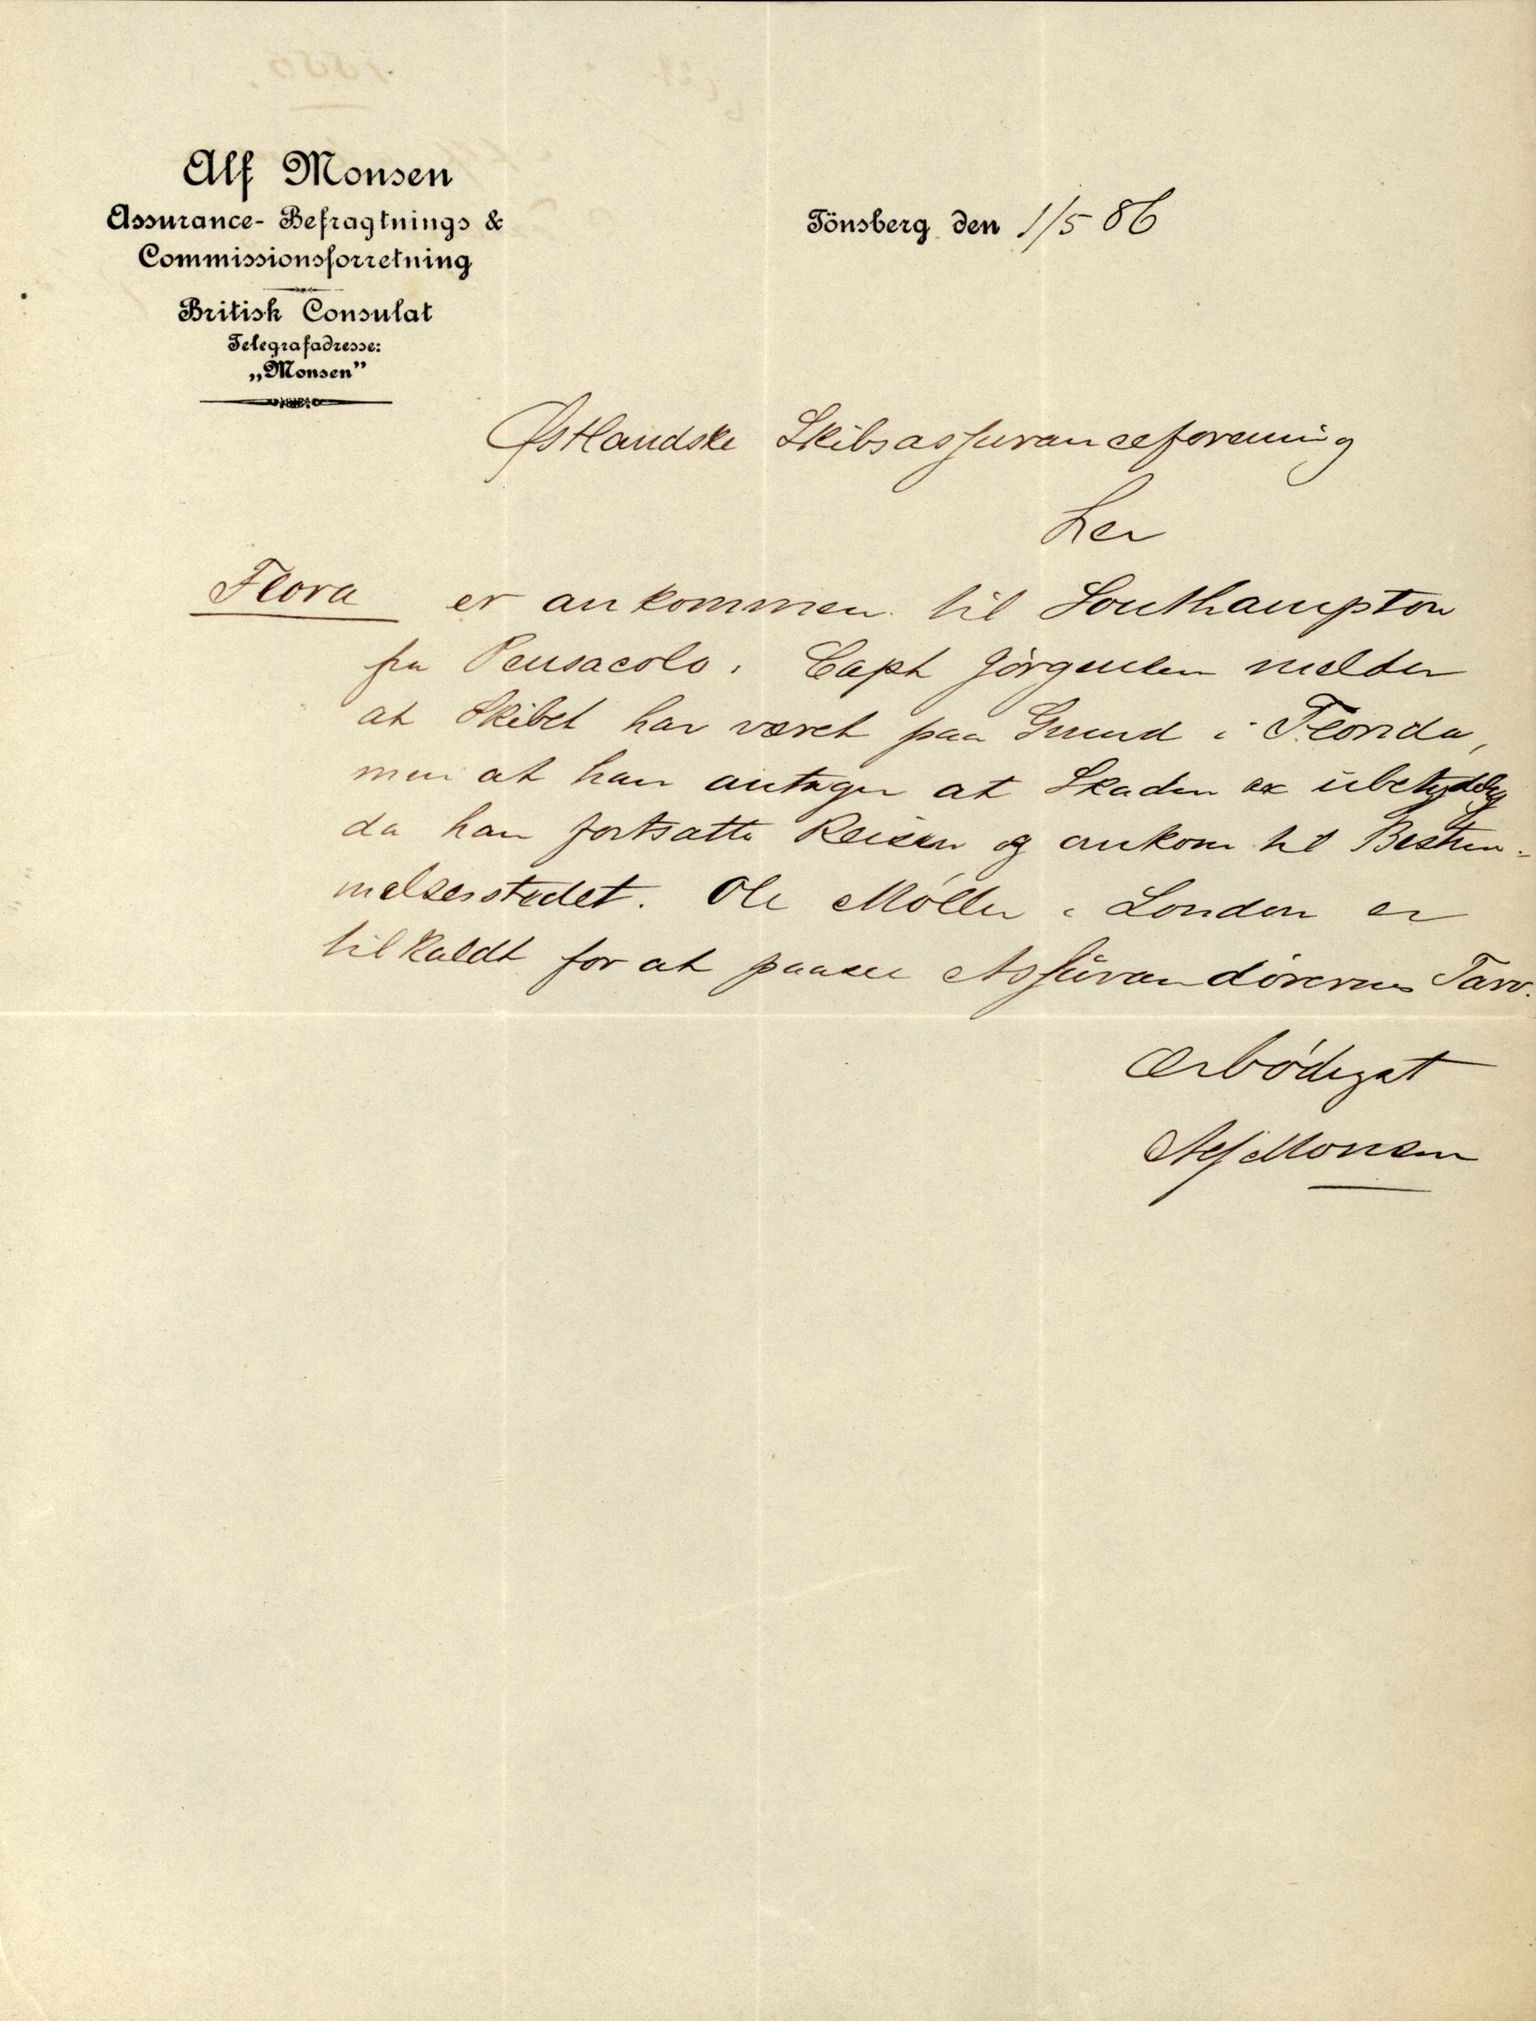 Alf Monsen
Assurance- Befragtnings &
Commissionsforretning
British Consulat
Telegrafadresse:
„Monsen”
Tönsberg den 1/5 86
Østlandske Skibsassuranceforening
her
Flora er ankommen til Southampton
fra Pensacola. Capt Jörgensen melder
at Skibet har været paa Grund i Florida,
men at han antager at Skaden er ubetydelig
da han fortsatte Reisen og ankom til Bestem-
melsesstedet. Ole Möller i London er
tilkaldt for at paase Assurandörernes Tarv.
Ærbödigst
Alf Monsen